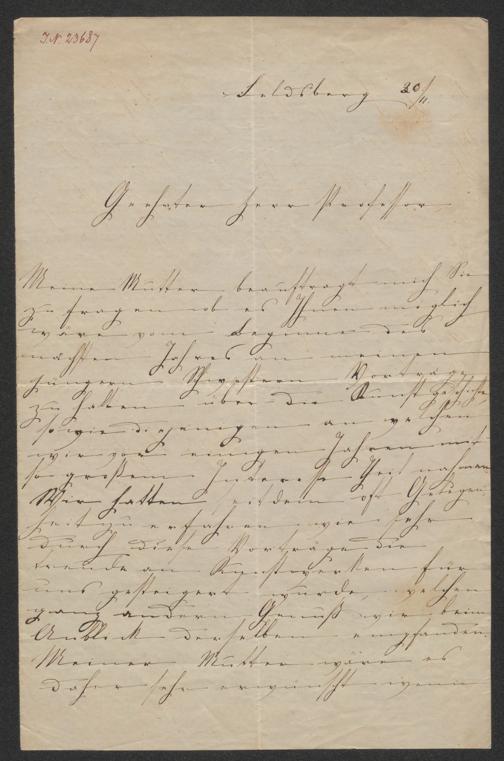 J.N. 23687
Feldsberg 20/11.
Geehrter Herr Professor
Meine Mutter beauftragt mich Sie
zu fragen ob es Ihnen möglich
wäre vom Beginne des
nächsten Jahres an meinen
jüngern Schwestern Vorträge
zu halten über die Kunstgeschichte
sowie diejenigen an welchen
wir vor einigen Jahren mit
so großem Interesse Theil nahmen
Wir hatten seitdem oft Gelegen
heit zu erfahren wie sehr
durch diese Vorträge die
Freude an Kunstwerken für
uns gesteigert wurde, welchen
ganz andern Genuß wir beim
Anblick derselben empfanden.
Meiner Mutter wäre es
daher sehr erwünscht wenn